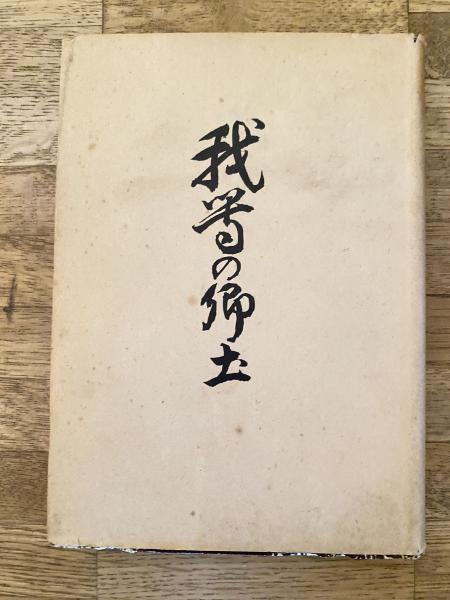 我等の郷土